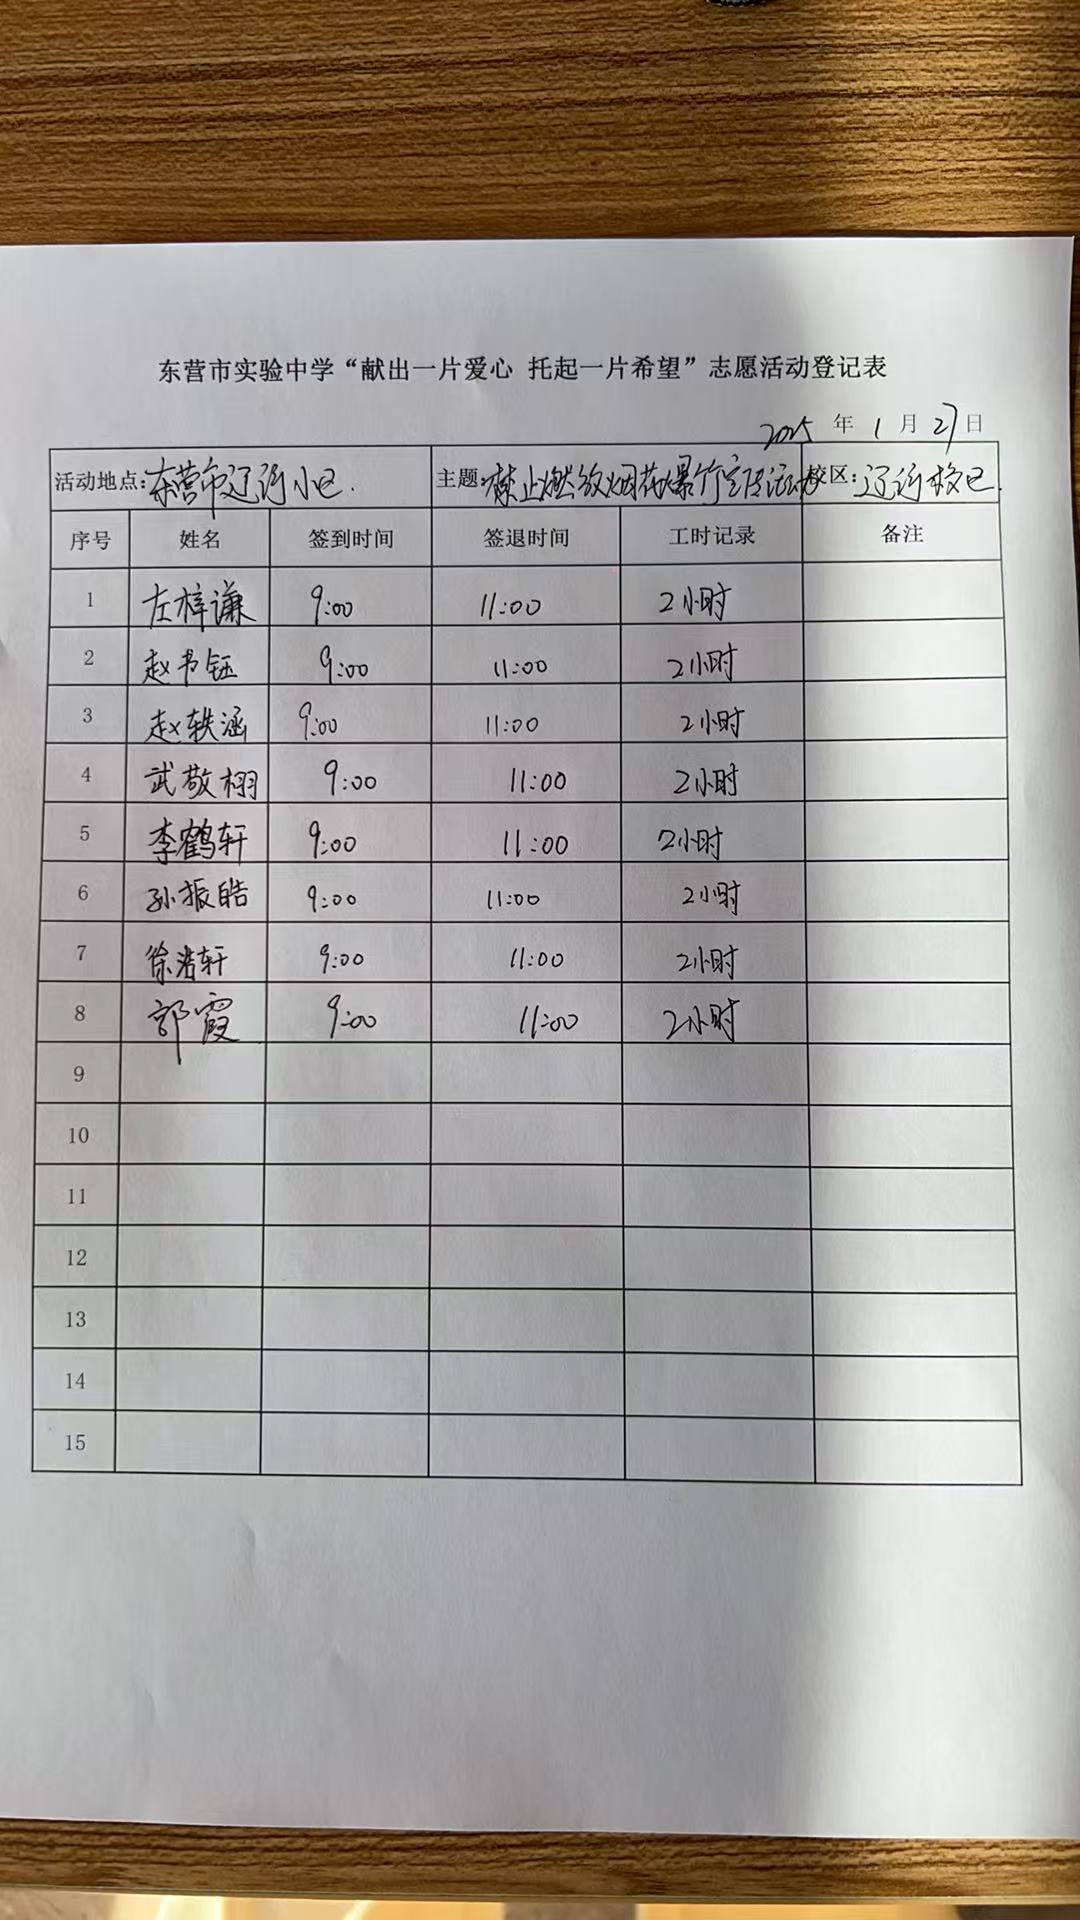 东营市实验中学“献出一片爱心 托起一片希望”志愿活动登记表
2025 年 1 月 27 日
活动地点:东营市辽河小区. 主题:禁止燃放烟花爆竹宣传活动 校区:辽河校区.
序号 姓名 签到时间 签退时间 工时记录 备注
1 左梓谦 9:00 11:00 2小时
2 赵书钰 9:00 11:00 2小时
3 赵轶涵 9:00 11:00 2小时
4 武敬栩 9:00 11:00 2小时
5 李鹤轩 9:00 11:00 2小时
6 孙振皓 9:00 11:00 2小时
7 徐浩轩 9:00 11:00 2小时
8 郭霞 9:00 11:00 2小时
9
10
11
12
13
14
15